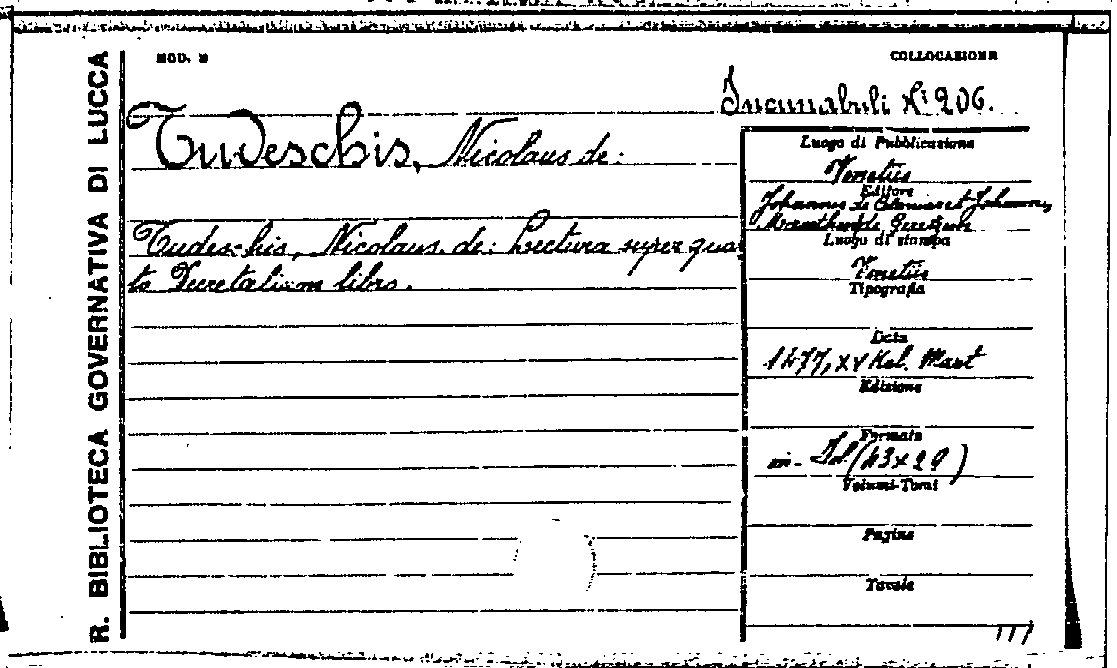 R. BIBLIOTECA GOVERNATIVA DI LUCCA
MOD. B
COLLOCAZIONE
Incunabuli N.º 206.
Tudeschis, Nicolaus de:
Tudeschis, Nicolaus de: Lectura super quar
to Decretalium libro.
Luogo di Pubblicazione
Venetiis
Editore
Johannes de Colonia et Johannes
Manthen de
Luogo di stampa
Venetiis
Tipografia
Data
1477, XV Kal. Mart
Edizione
Formato
in-Fol (43x29)
Volumi-Tomi
Pagine
Tavole